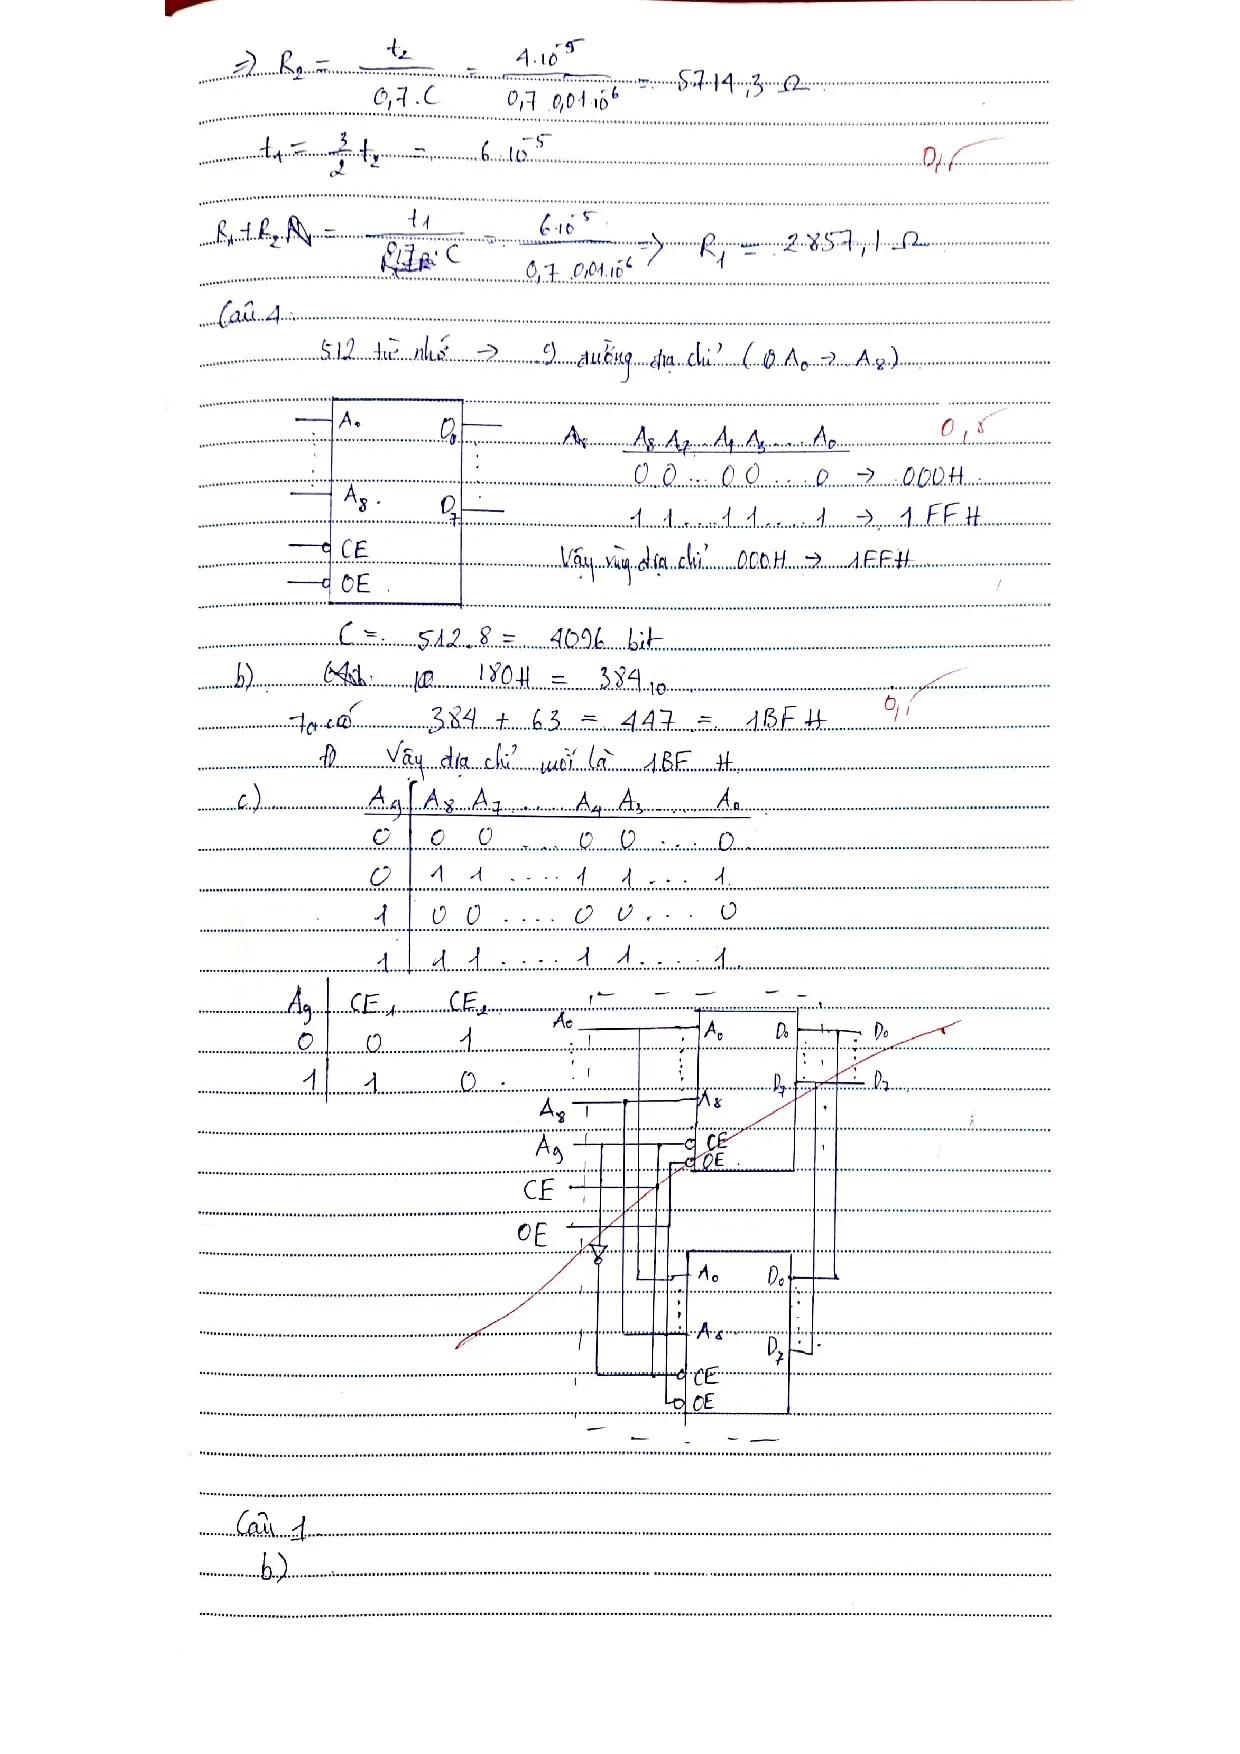 => R2 = t2 / 0,7.C = 4.10^-5 / 0,7 0,01.10^-6 = 5714,3 Ω
t1 = 3/2 t2 = 6.10^-5
0,5
R1 + R2 = t1 / 0,7.C = 6.10^-5 / 0,7 0,01.10^-6 => R1 = 2857,1 Ω
Câu 4
512 từ nhớ -> 9 đường địa chỉ (A0 -> A8)
A0 D0
A8 D7
CE
OE
A8 A7 A4 A3 .... A0
0,5
0 0 ... 0 0 ... 0 -> 000H
1 1 .... 1 1 .... 1 -> 1FFH
Vậy vùng địa chỉ 000H -> 1FFH
C = 512.8 = 4096 bit
b) 180H = 384 10
ta có 384 + 63 = 447 = 1BFH
0,5
Vậy địa chỉ mới là 1BF H
c) A9 A8 A7 .... A4 A3 .... A0
0 0 0 .... 0 0 .... 0
0 1 1 .... 1 1 ... 1
1 0 0 .... 0 0 ... 0
1 1 1 .... 1 1 .... 1
A9 CE1 CE2
0 0 1
1 1 0
A0 A0 D0 D0
D7 D7
A8 A8
A9 CE
OE
CE
OE
A0 D0
A8 D7
CE
OE
Câu 1
b)